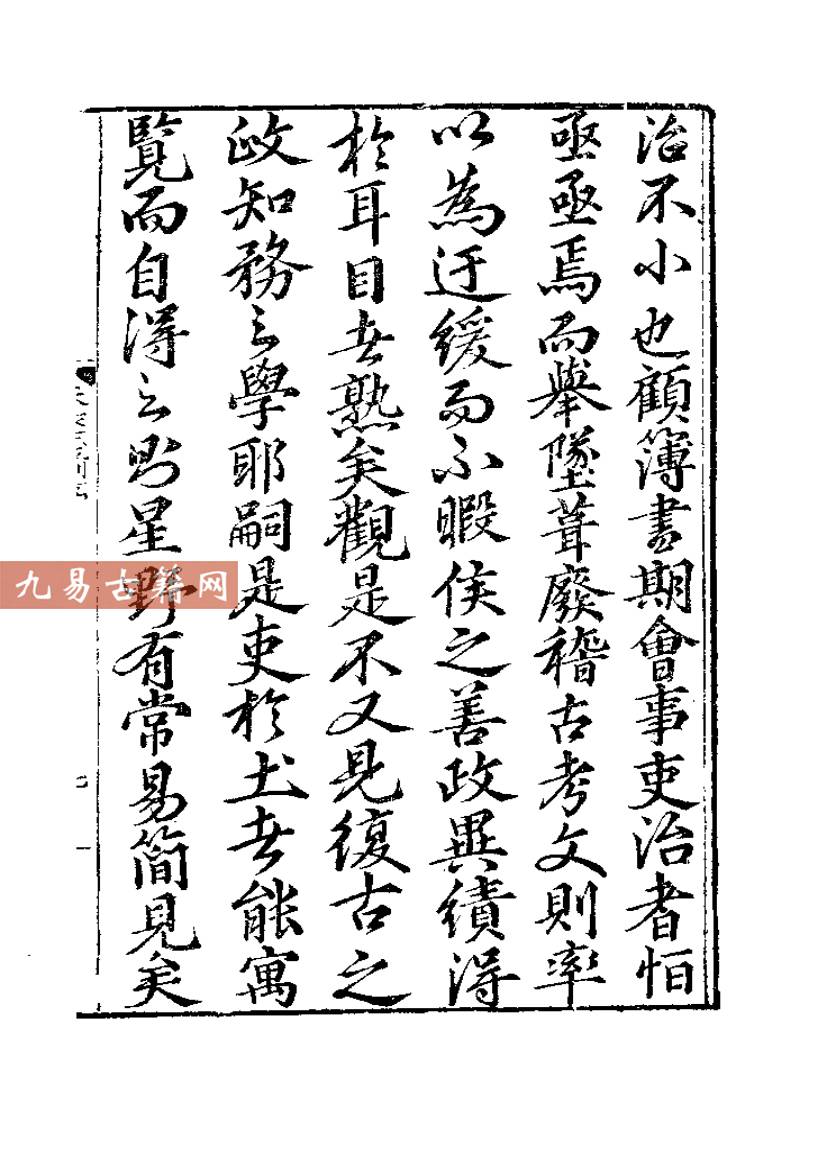 治不小也顧簿書期會事吏治者恒
亟亟焉而舉墜葺廢稽古考文則率
以為迂緩而不暇侯之善政異績得
於耳目者熟矣觀是不又見復古之
政知務之學耶嗣是吏於土者能寓
覽而自得之則星野有常易簡見矣
九易古籍网